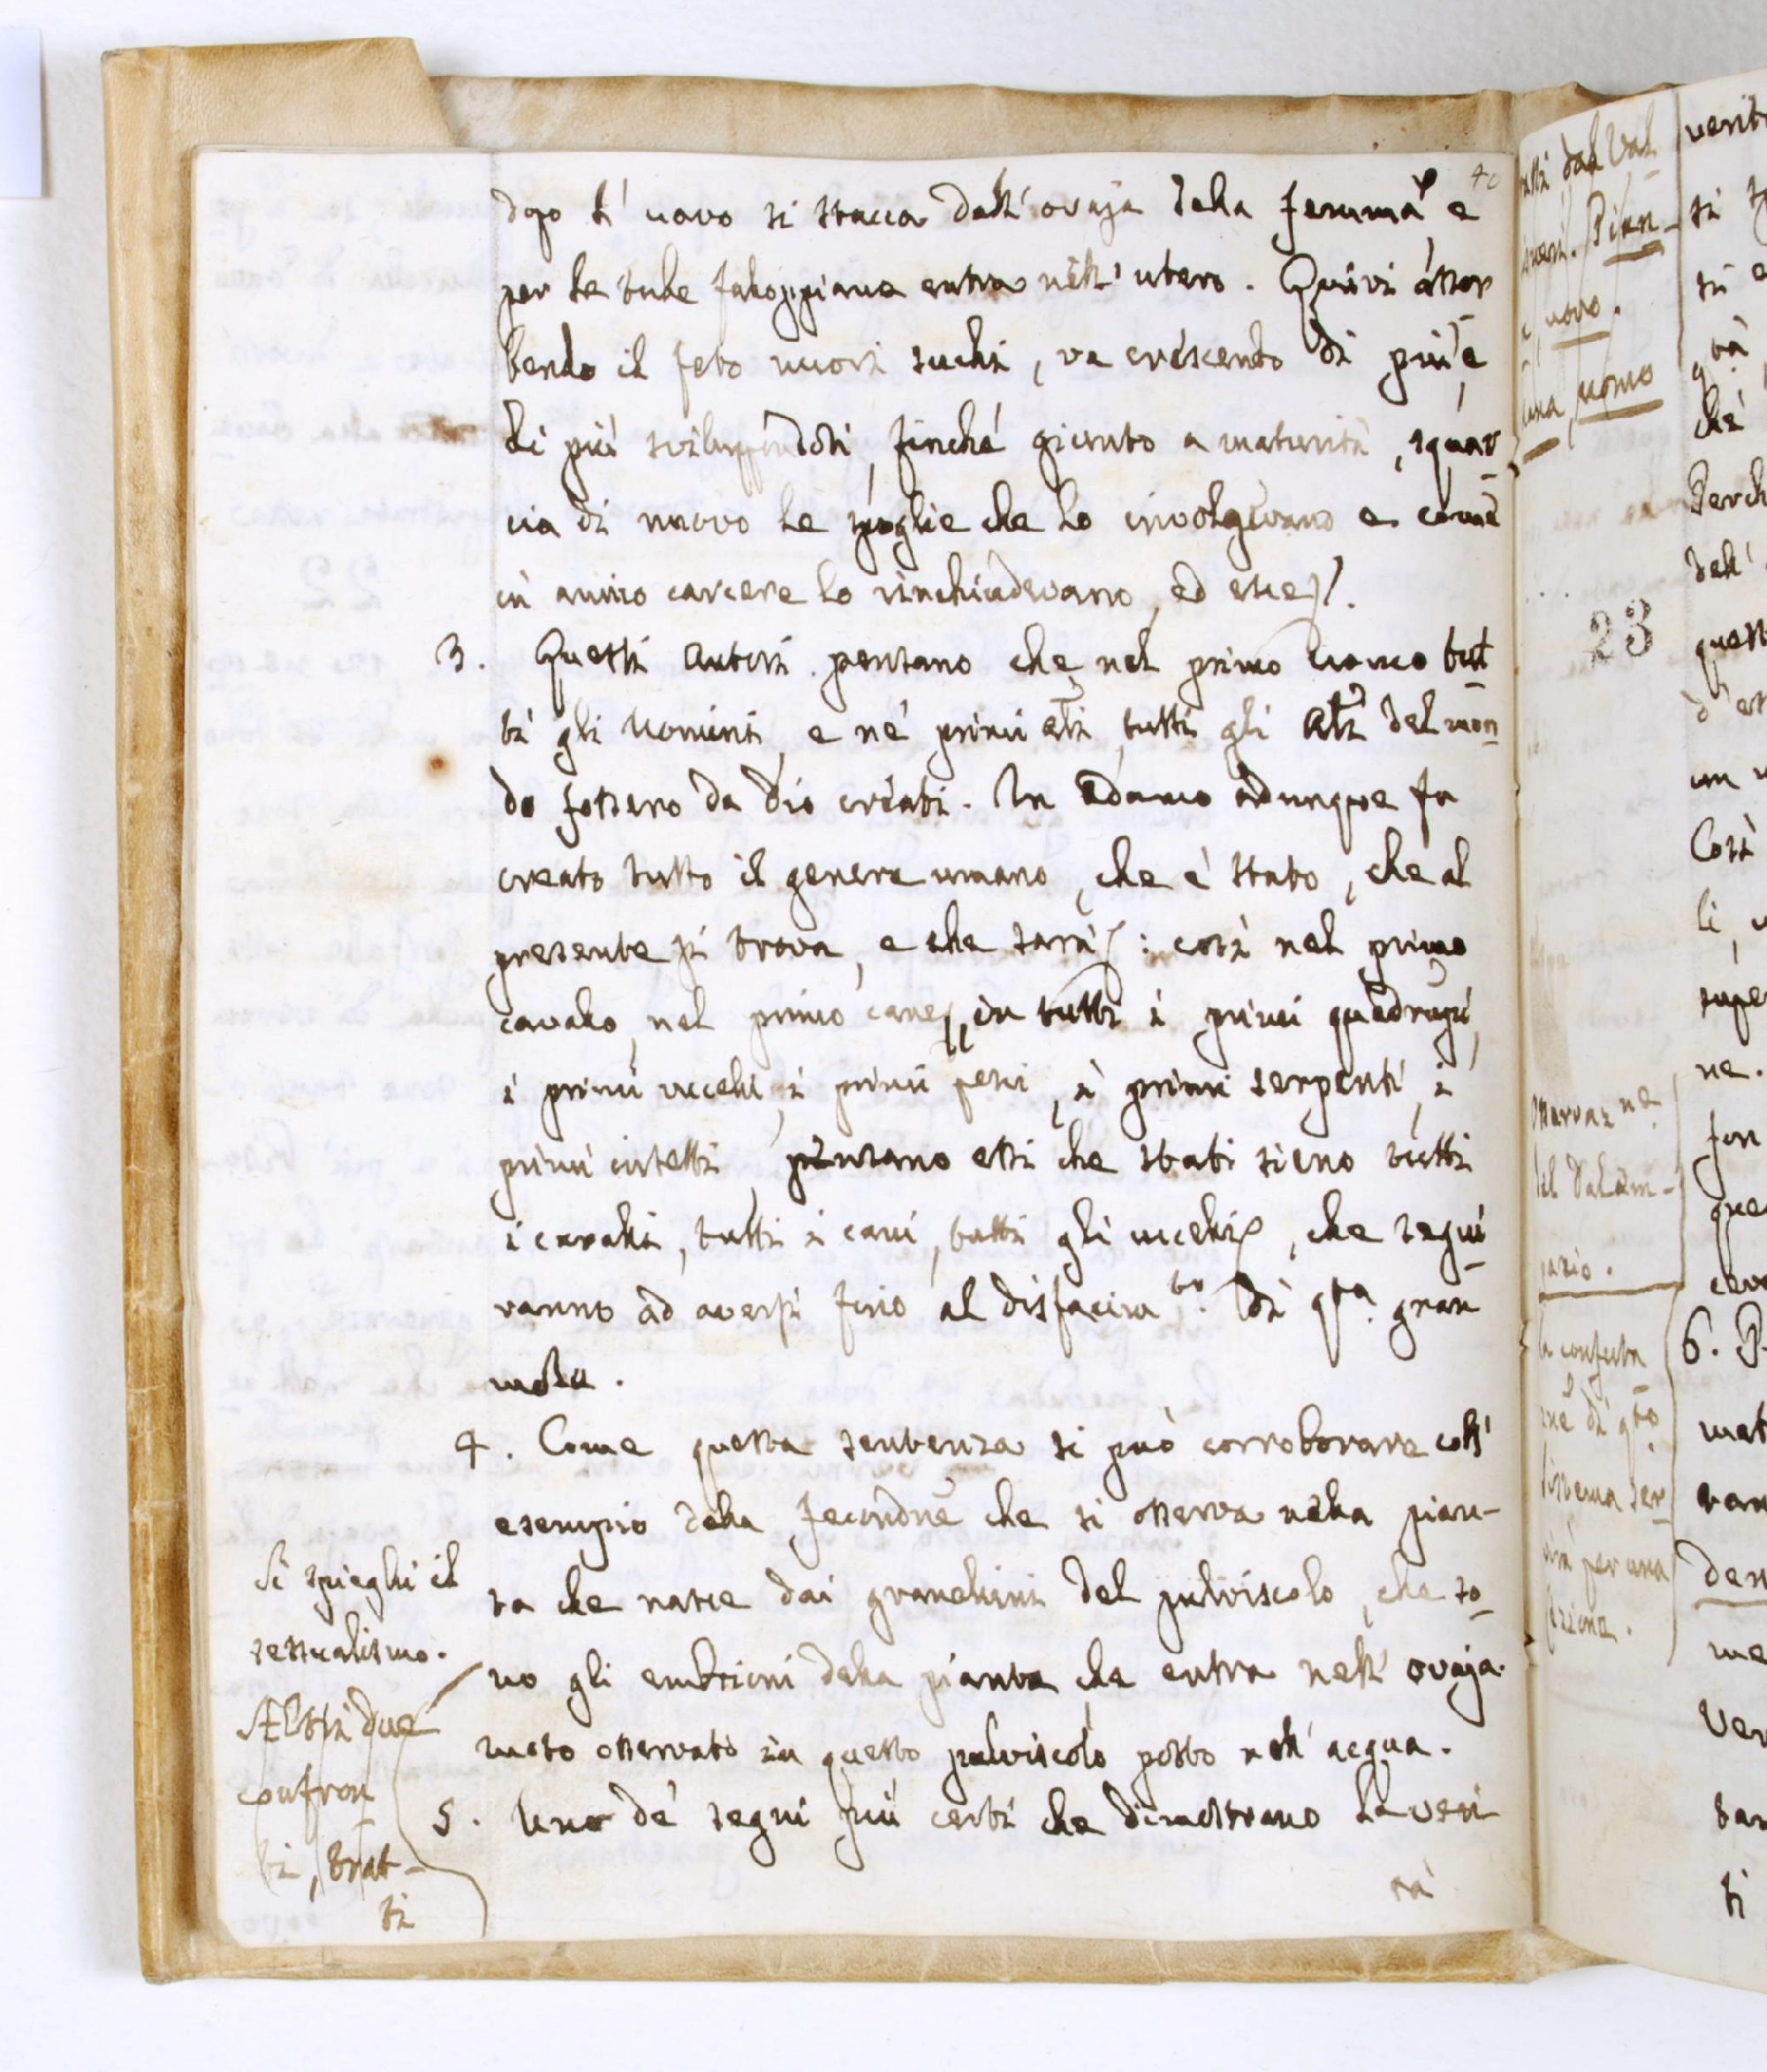 40
dopo l'uovo si stacca dall'ovaja della femina, e
per le tube falloppiane entra nell'utero. Quivi assor-
bendo il feto nuovi sucki, va crescendo di più, e
di più sviluppandosi, finché giunto a maturità, squar-
cia di nuovo le spoglie che lo involgevano e come
in carcere lo rinchiudevano, ed esce.
3. Questi autori pensano che nel primo uomo tut-
ti gli uomini, e ne' primi ali tutti gli ali del mon-
do fossero da Dio creati. In Adamo adunque fu
creato tutto il genere umano, che è stato, che al
presente si trova, e che sarà: così nel primo
cavallo, nel primo cane, in tutti i primi quadrupi,
i primi uccelli, i primi pesci, i primi serpenti, i
primi insetti, pensano essi che stati sieno tutti
i cavalli, tutti i cani, tutti gli uccelli, che segui-
ranno ad aversi fino al disfacim.to di q.ta gran
mole.
4. Come questa sentenza si può corroborare coll'
esempio della fecondne che si osserva nella pian-
ta che nasce dai granellini del pulviscolo, che so-
no gli embrioni della pianta che entra nell'ovaja.
moto osservato in questo pulviscolo posto nell'acqua.
5. Uno de' segni più certi che dimostrano la veri-
tà
Si spieghi il
sessualismo.
Altri due
confron-
ti, trat-
ti
dal Val
Pian-
uovo.
uomo
23
Osservazne
del Valsin-
la confuta
ne di q.to
sistema ser
per una
verit
si
che
Perch
dell'
quest
un
Così
li,
supe
ne.
fon
que
6. P
mat
den
me
ver
tan
ti